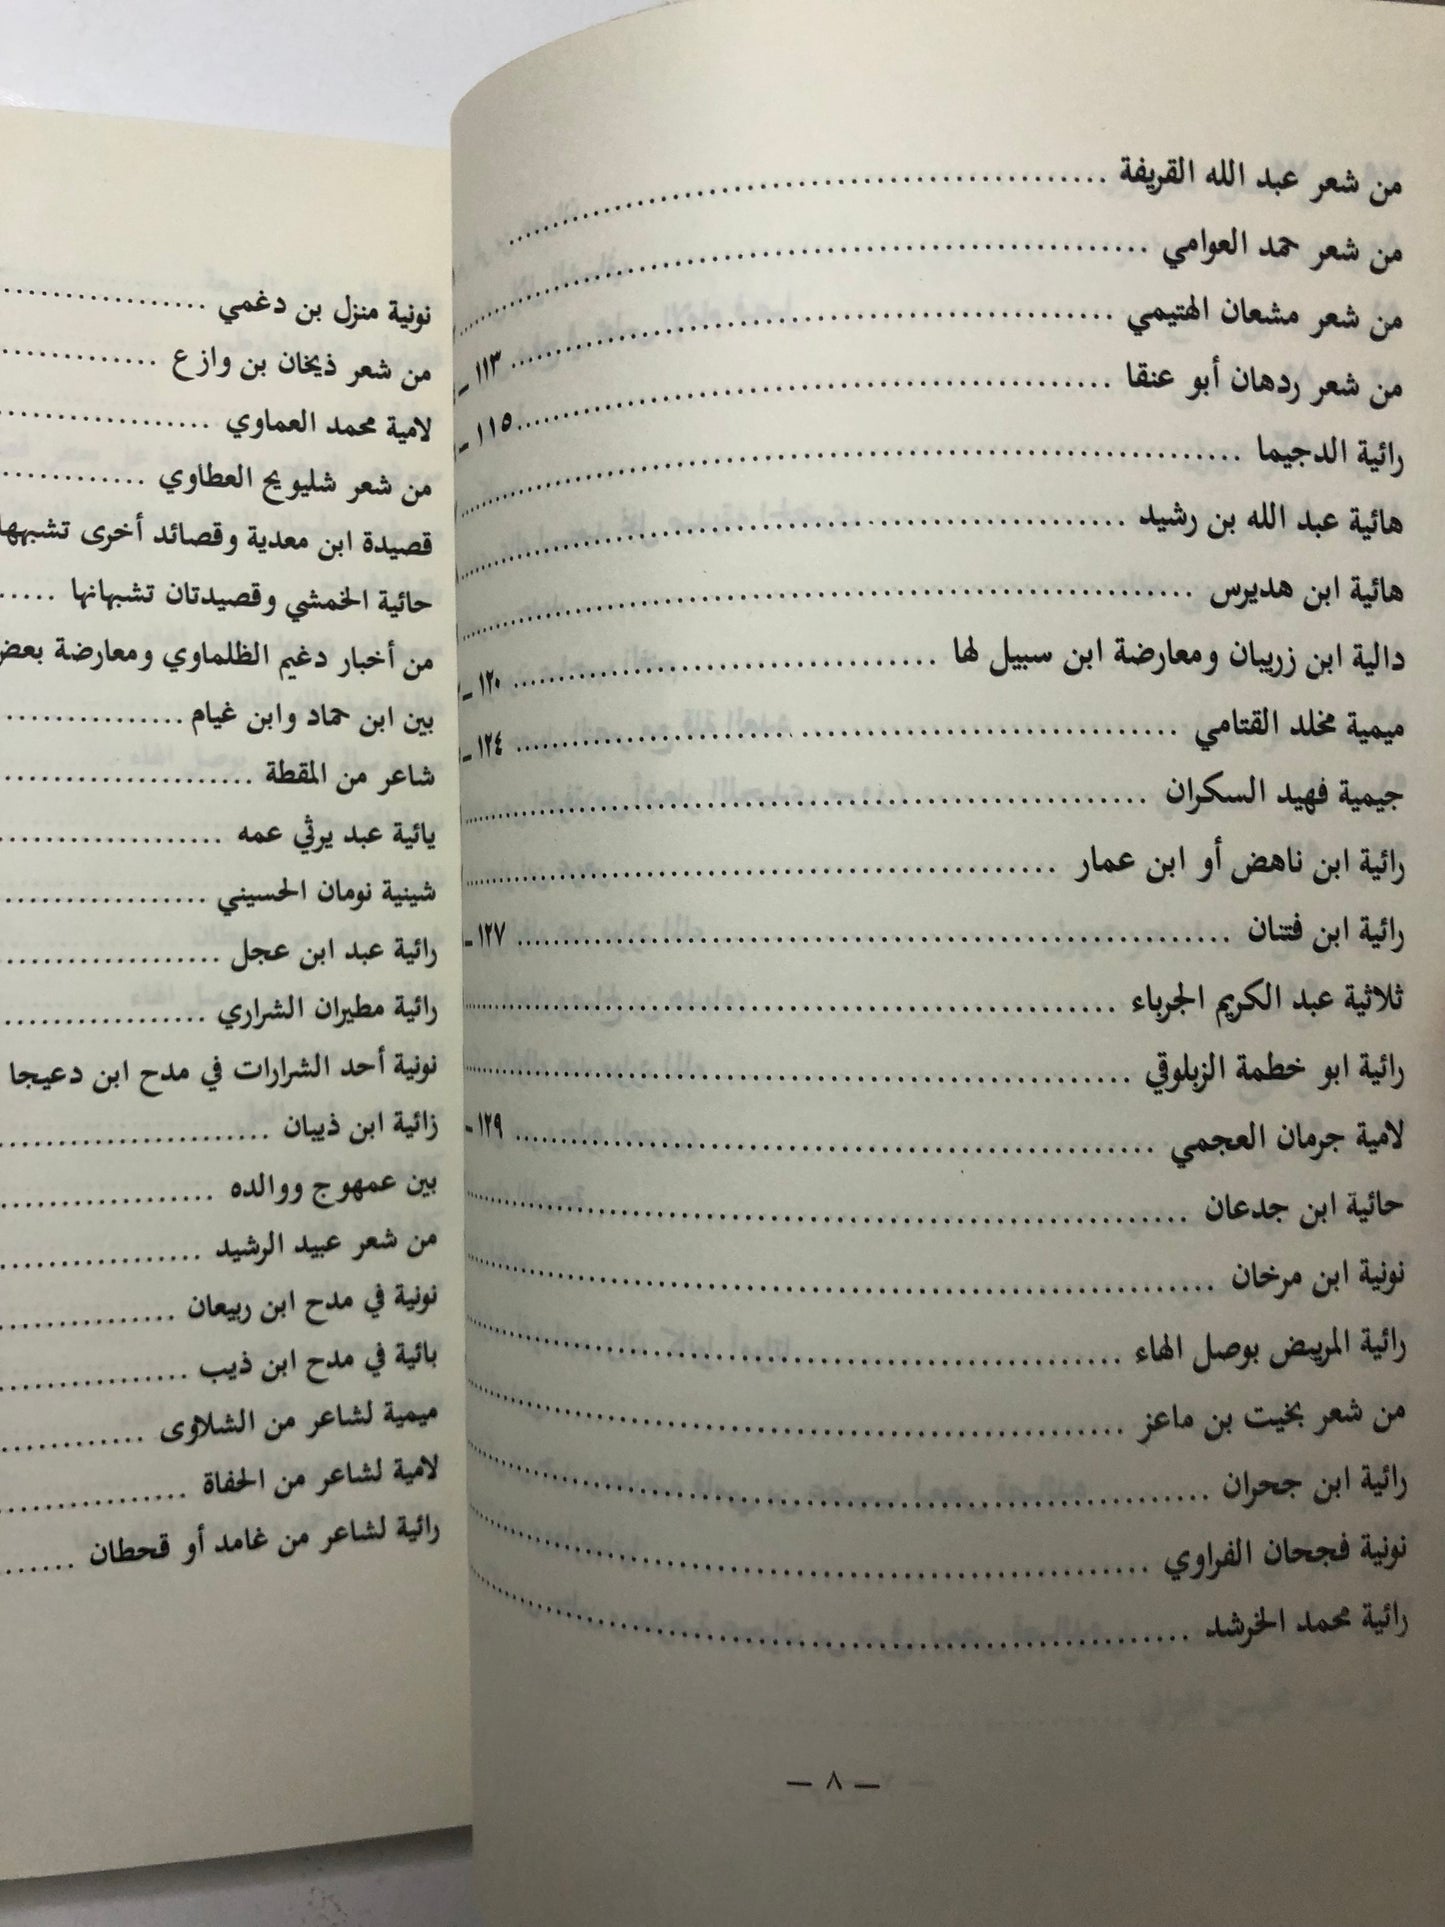 من شعر عبد الله القريفة
من شعر حمد العوامي
من شعر مشعان الهتيمي ١١٣ ـ
من شعر ردهان أبو عنقا ١١٥ ـ
رائية الدجيما
هائية عبد الله بن رشيد
هائية ابن هديرس
دالية ابن زريبان ومعارضة ابن سبيل لها ١٢٠ ـ
ميمية مخلد القتامي ١٢٤ ـ
جيمية فهيد السكران
رائية ابن ناهض أو ابن عمار
رائية ابن فتنان ١٢٧ ـ
ثلاثية عبد الكريم الجرباء
رائية ابو خطمة الزبلوقي
لامية جرمان العجمي ١٢٩ ـ
حائية ابن جدعان
نونية ابن مرخان
رائية المريبض بوصل الهاء
من شعر بخيت بن ماعز
رائية ابن جحران
نونية فجحان الفراوي
رائية محمد الخرشد
— ٨ —
نونية منزل بن دغمي
من شعر ذيخان بن وازع
لامية محمد العماوي
من شعر شليويح العطاوي
قصيدة ابن معدية وقصائد أخرى تشبهها
حائية الخمشي وقصيدتان تشبهانها
من أخبار دغيم الظلماوي ومعارضة بعض
بين ابن حماد وابن غيام
شاعر من المقطة
يائية عبد يرثي عمه
شينية نومان الحسيني
رائية عبد ابن عجل
رائية مطيران الشراري
نونية أحد الشرارات في مدح ابن دعيجا
زائية ابن ذيبان
بين عمهوج ووالده
من شعر عبيد الرشيد
نونية في مدح ابن ربيعان
بائية في مدح ابن ذيب
ميمية لشاعر من الشلاوى
لامية لشاعر من الحفاة
رائية لشاعر من غامد أو قحطان